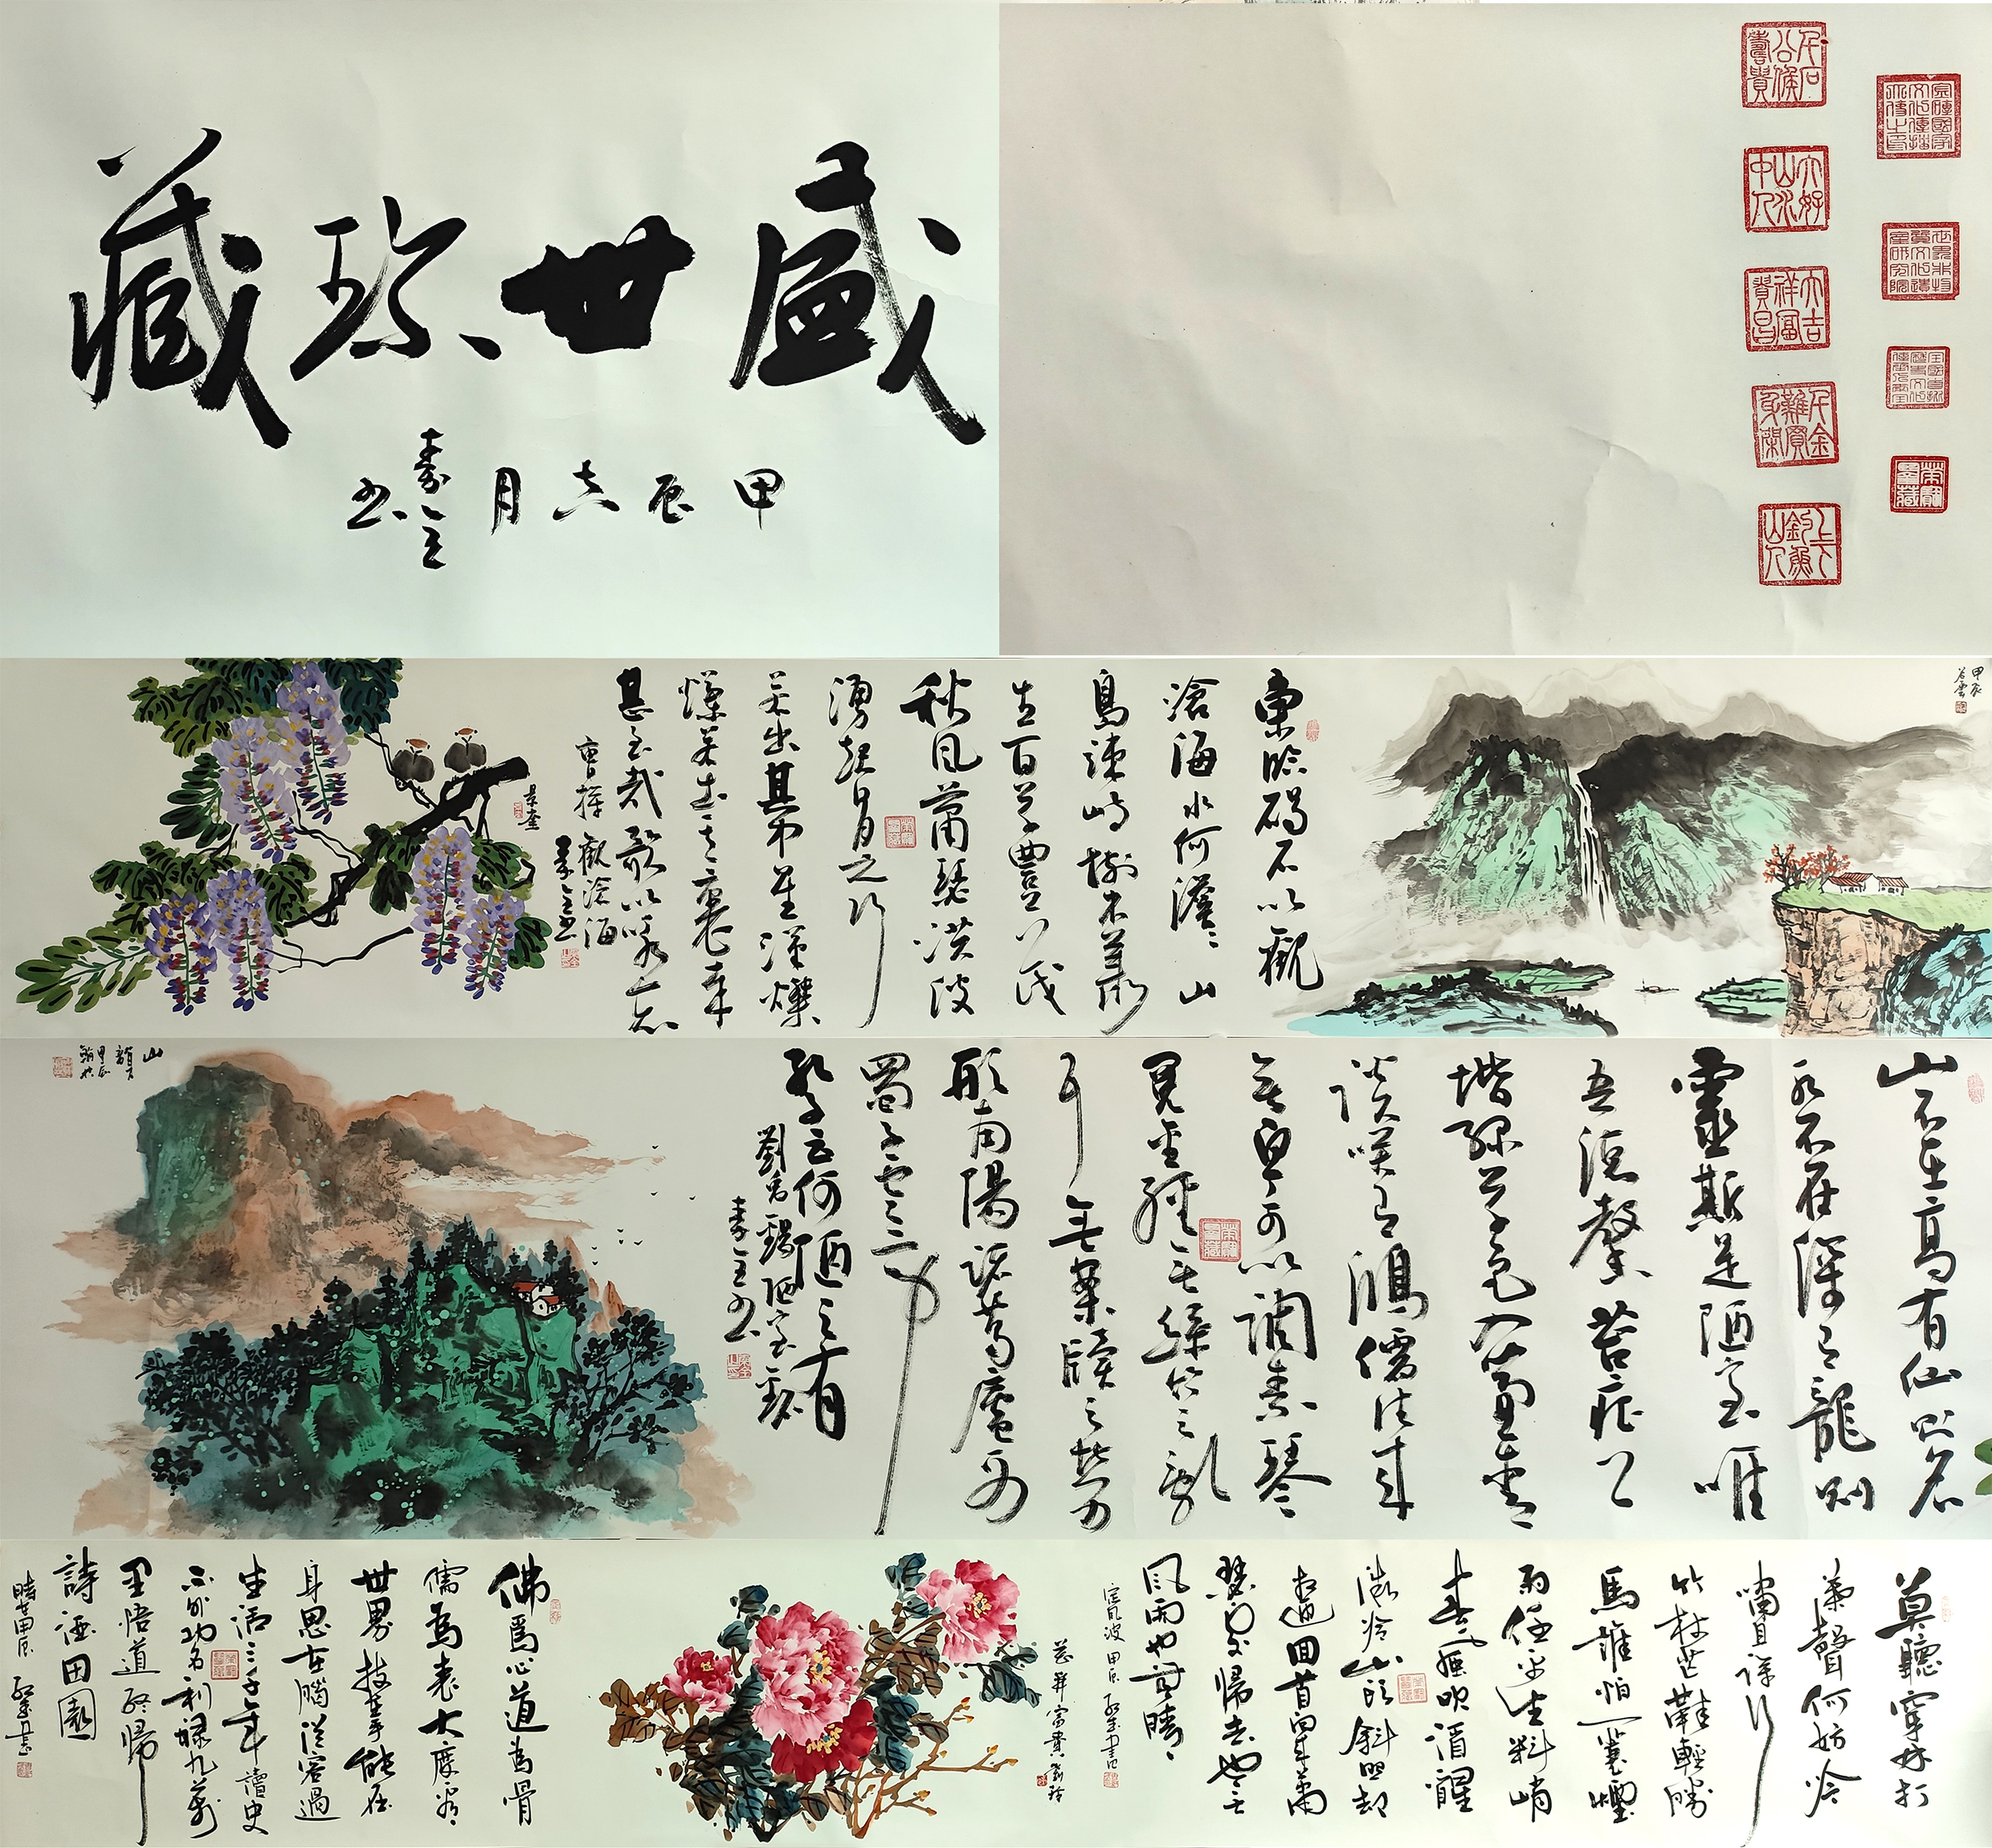 盛世珍藏
甲辰吉月
千石公侯壽貴
大吉祥富貴昌
上下釣魚山人
甲辰
東臨碣石以觀
滄海水何澹澹山
島竦峙樹木叢
生百草豐茂
秋風蕭瑟洪波
湧起日月之行
若出其中星漢燦
爛若出其裏幸
甚至哉歌以詠志
曹操觀滄海
山不在高有仙則名
水不在深有龍則
靈斯是陋室唯
吾德馨苔痕上
堦綠草色入簾青
談笑有鴻儒往來
無白丁可以調素琴
閱金經無絲竹之亂
耳無案牘之勞
形南陽諸葛廬西
蜀子雲亭
孔子云何陋之有
劉禹錫陋室銘
莫聽穿林打
葉聲何妨吟
嘯且徐行
竹杖芒鞋輕勝
馬誰怕一蓑煙
雨任平生料峭
春風吹酒醒
微冷山頭斜照却
相迎回首向來蕭
瑟處歸去也無
風雨也無晴
定風波 甲辰
富貴
佛爲心道為骨
儒為表大度看
世界技在手能在
身思在腦從容過
生活三千年讀史
不外功名利祿九萬
里悟道終歸
詩酒田園
時甲辰